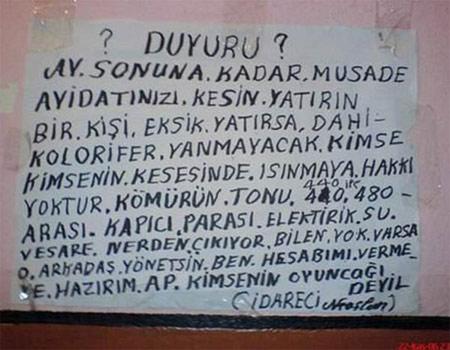 ? DUYURU ?
AY. SONUNA. KADAR. MUSADE
AYİDATINIZI. KESİN. YATIRIN
BİR. KİŞİ, EKSİK. YATIRSA, DAHİ-
KOLORİFER, YANMAYACAK. KİMSE
KİMSENİN. KESESİNDE, ISINMAYA. HAKKI
YOKTUR, KÖMÜRÜN. TONU, 440 ile 480-
ARASI. KAPICI, PARASI. ELEKTİRİK. SU.
VESARE. NERDEN, ÇIKIYOR, BİLEN, YOK. VARSA
O. ARKADAŞ. YÖNETSİN. BEN. HESABIMI. VERME-
YE. HAZIRIM. AP. KİMSENİN OYUNCAĞI
DEYİL
(İDARECİ )